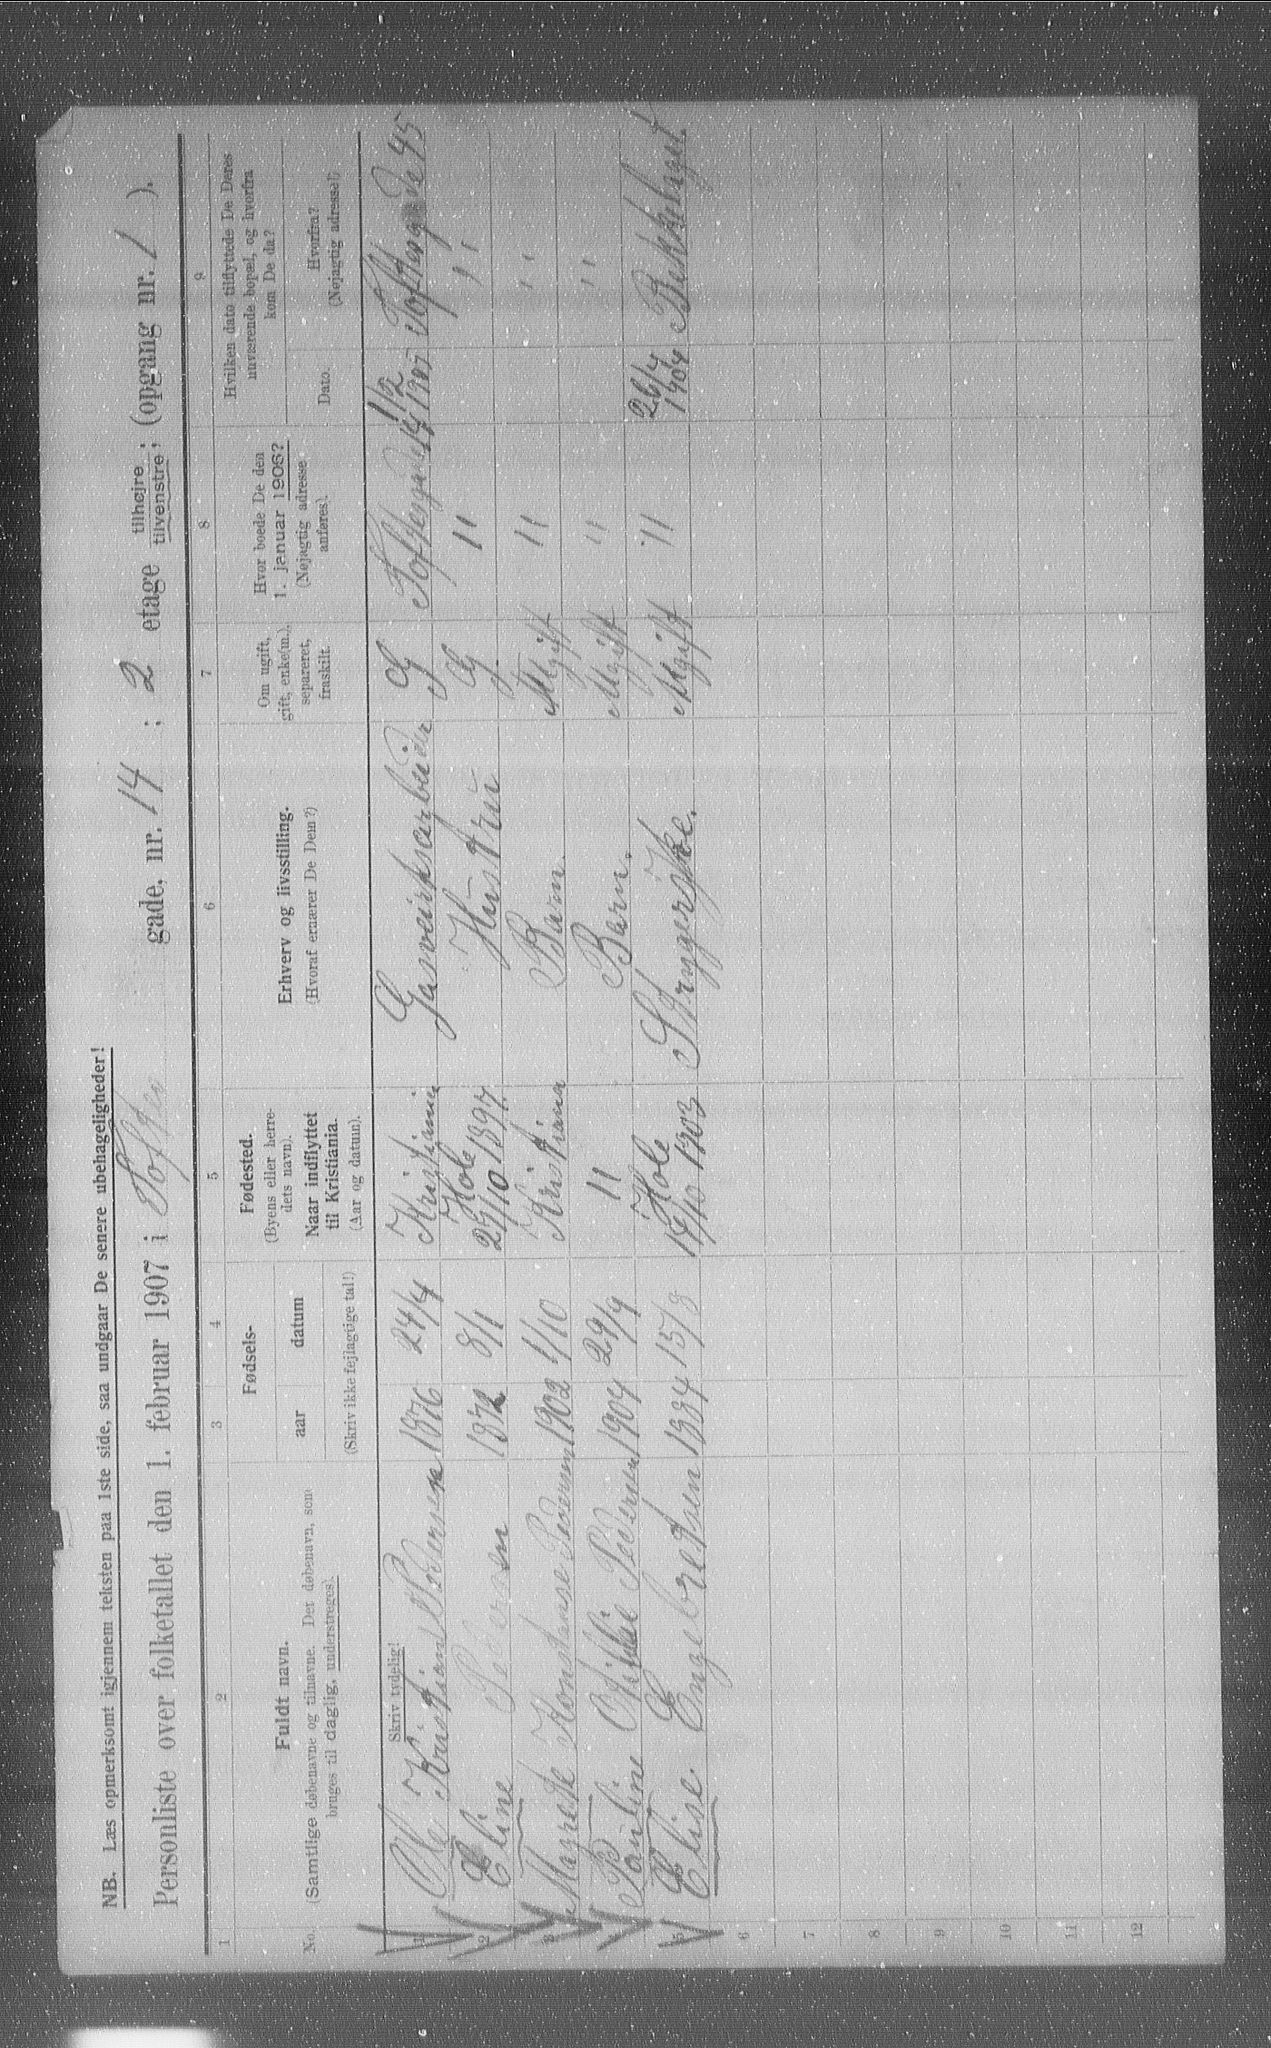 NB. Læs opmerksomt igjennem teksten paa 1ste side, saa undgaar De senere ubehageligheder!
Personliste over folketallet den 1. februar 1907 i Toftes gade, nr. 14 ; 2 etage tilhøjre tilvenstre ; (opgang nr. 1 ).
1 2 3 4 5 6 7 8 9
No.
Fuldt navn.
(Samtlige døbenavne og tilnavne. Det døbenavn, som
bruges til daglig, understreges).
Fødsels-
aar datum
(Skriv ikke fejlagtige tal!)
Fødested.
(Byens eller herre-
dets navn).
Naar indflyttet
til Kristiania.
(Aar og datum).
Erhverv og livsstilling.
(Hvoraf ernærer De Dem?)
Om ugift,
gift, enke(m.),
separeret,
fraskilt.
Hvor boede De den
1. januar 1906?
(Nøjagtig adresse
anføres).
Hvilken dato tilflyttede De Deres
nuværende bopæl, og hvorfra
kom De da?
Dato.
Hvorfra?
(Nøjagtig adresse!)
Skriv tydelig!
1 Ole Kristian Pedersen 1876 24/4 Kristiania Gasverksarbeider G Toftesgade 14 1/2 1907 Toftesgade 45
2 Eline Pedersen 1872 8/1 Hole 29/10 1897. Hustru G. " "
3 Magrete Konstanse Pedersen 1902 1/10 Kristiania Barn. Ugift " "
4 Pauline Otilie Pedersen 1904 29/9 " Barn. Ugift " "
5 Elise. Engebretsen 1884 15/8 Hole 14/10 1903 Strygerske. Ugift " 26/4 1904 Bekkelaget.
6
7
8
9
10
11
12